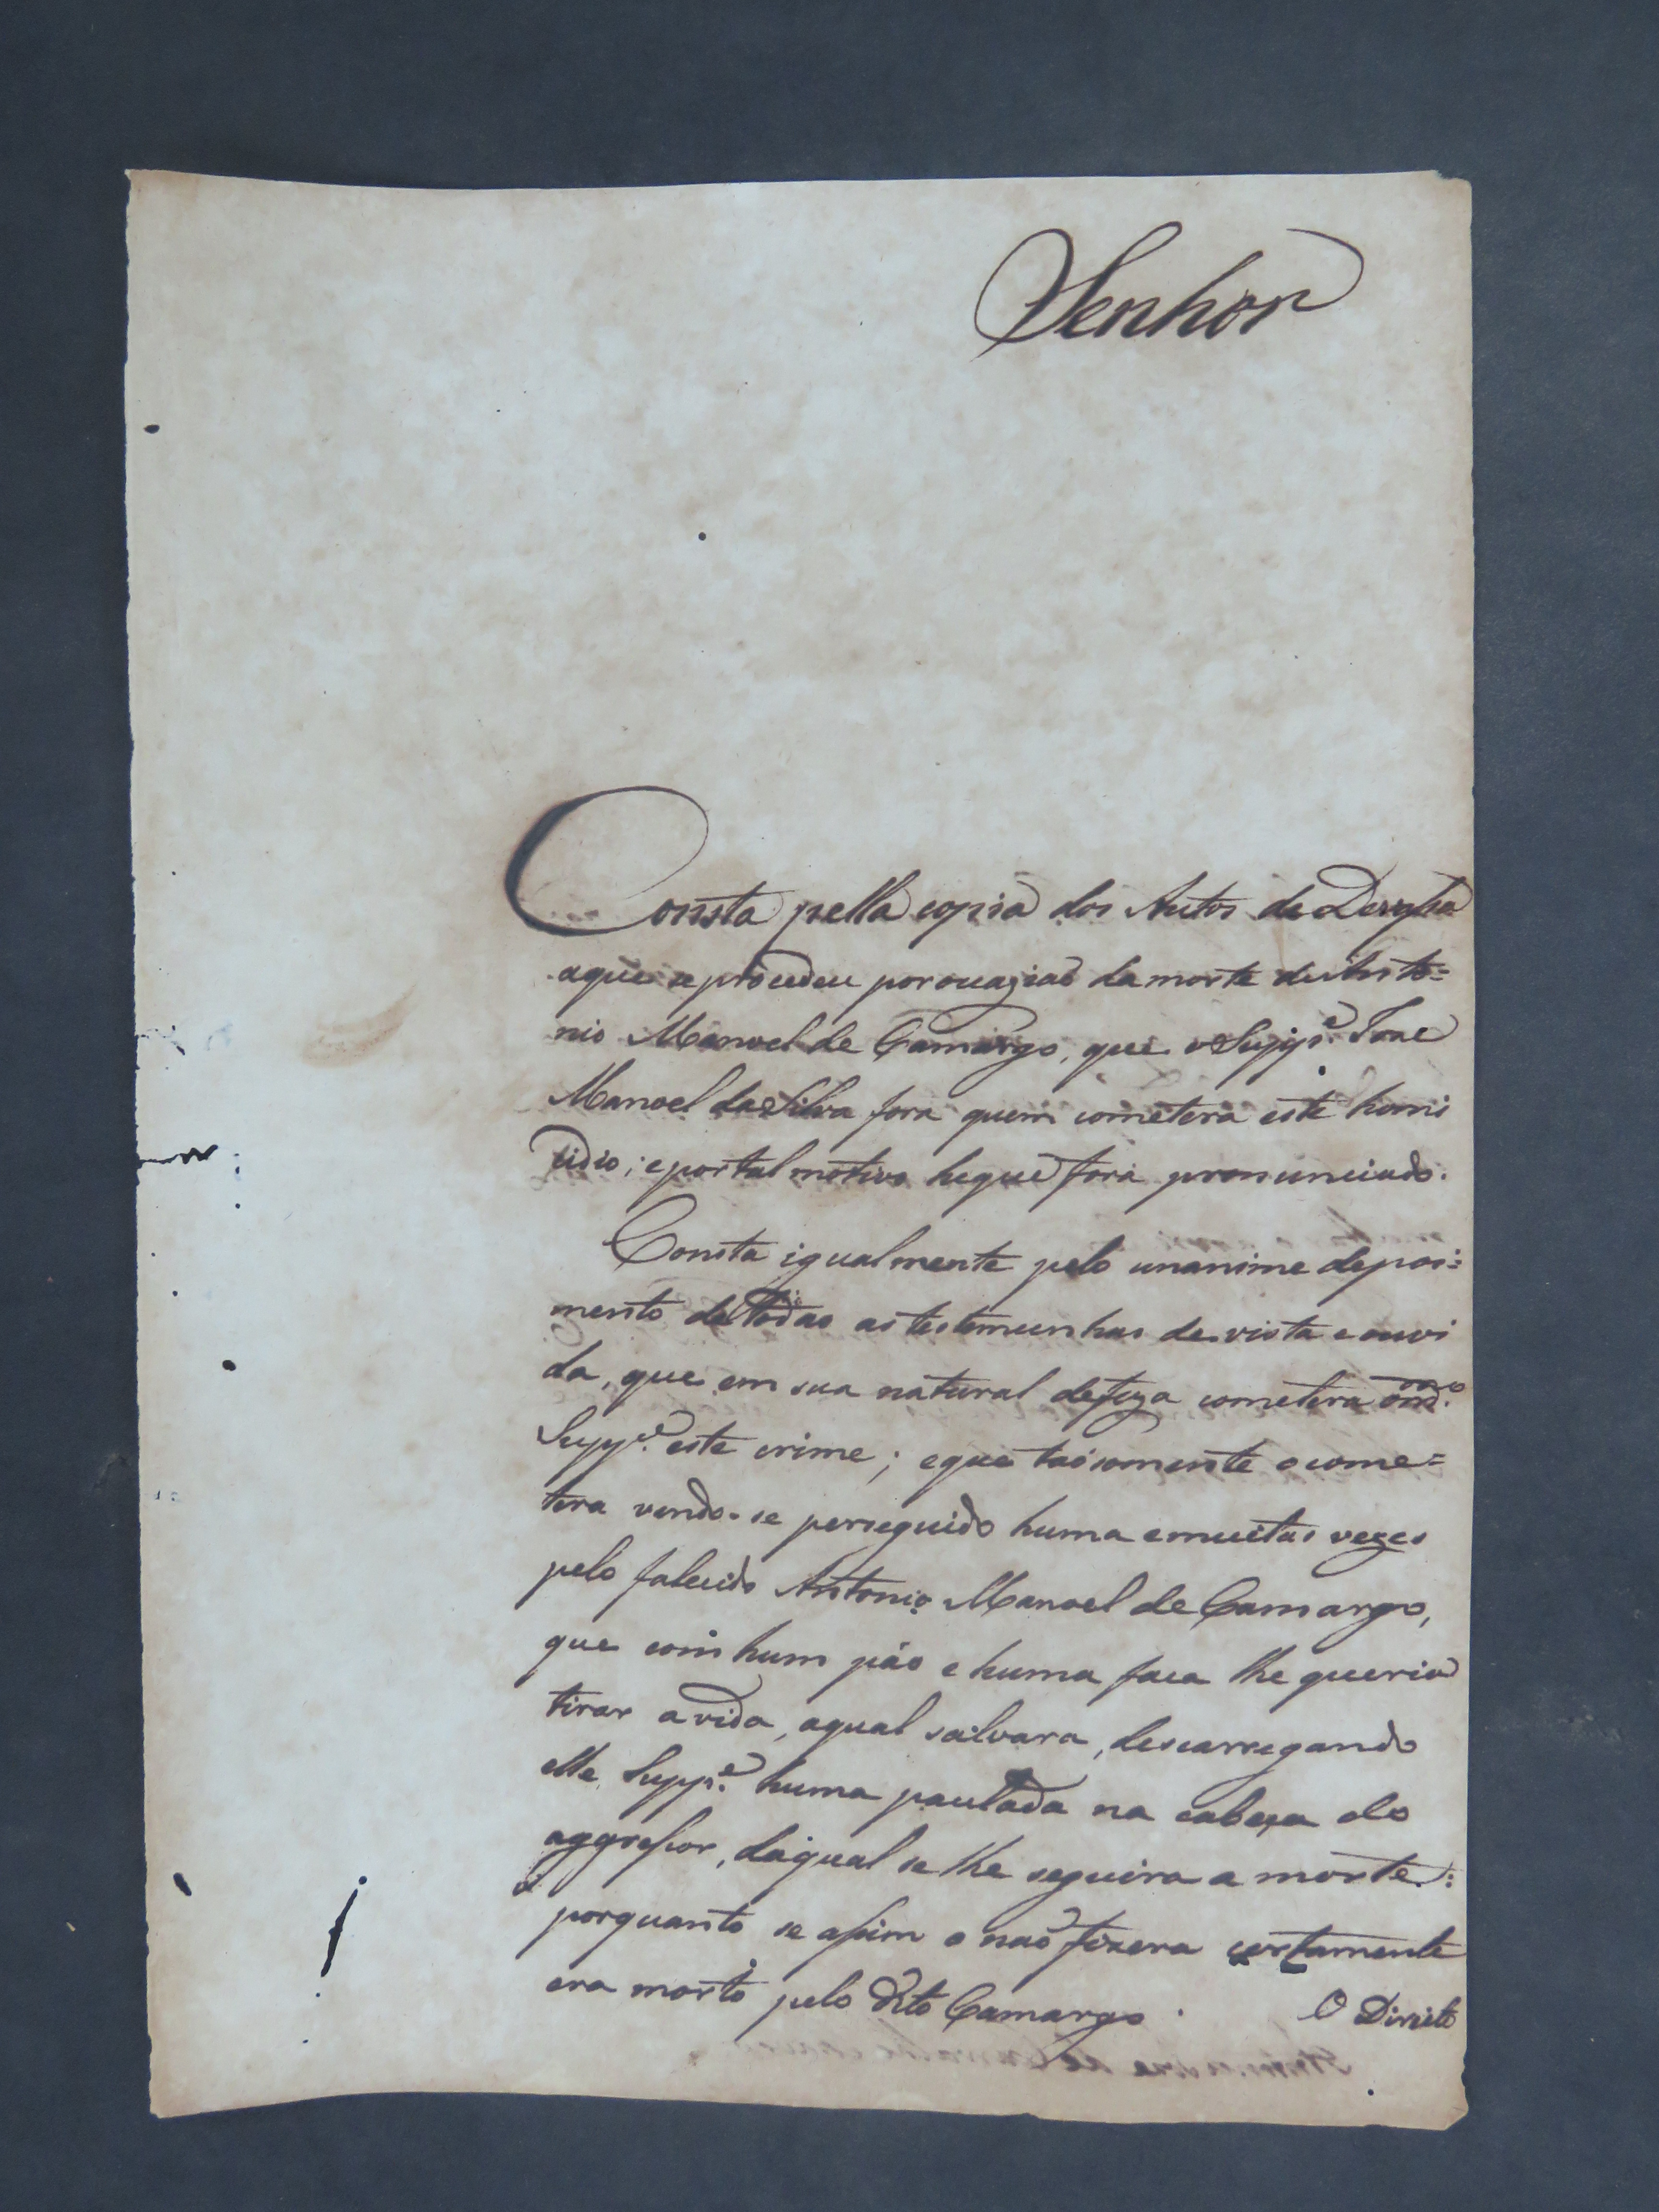 Senhor
Consta pella copia dos Autos de
aque se procedeu por ocaziaõ da morte de Anto=
nio Manoel de Camargo, que o Supp.e Joze
Manoel da Silva fora quem cometera este homi
cidio; e por tal motivo he que fora pronunciado.
Consta igualmente pelo unanime depoi=
mento de todas as testemunhas de vista e ouvi
da, que em sua natural defeza cometera o m.mo
Supp.e este crime; e que taõ somente o come=
tera vendo-se perseguido huma e muitas vezes
pelo falecido Antonio Manoel de Camargo,
que com hum páo e huma faca lhe queria
tirar a vida, a qual salvara, descarregando
elle Supp.e huma paulada na cabeça do
aggressor, da qual se lhe seguira a morte:
porquanto se assim o naõ fizera certamente
era morto pelo dito Camargo. O Direito